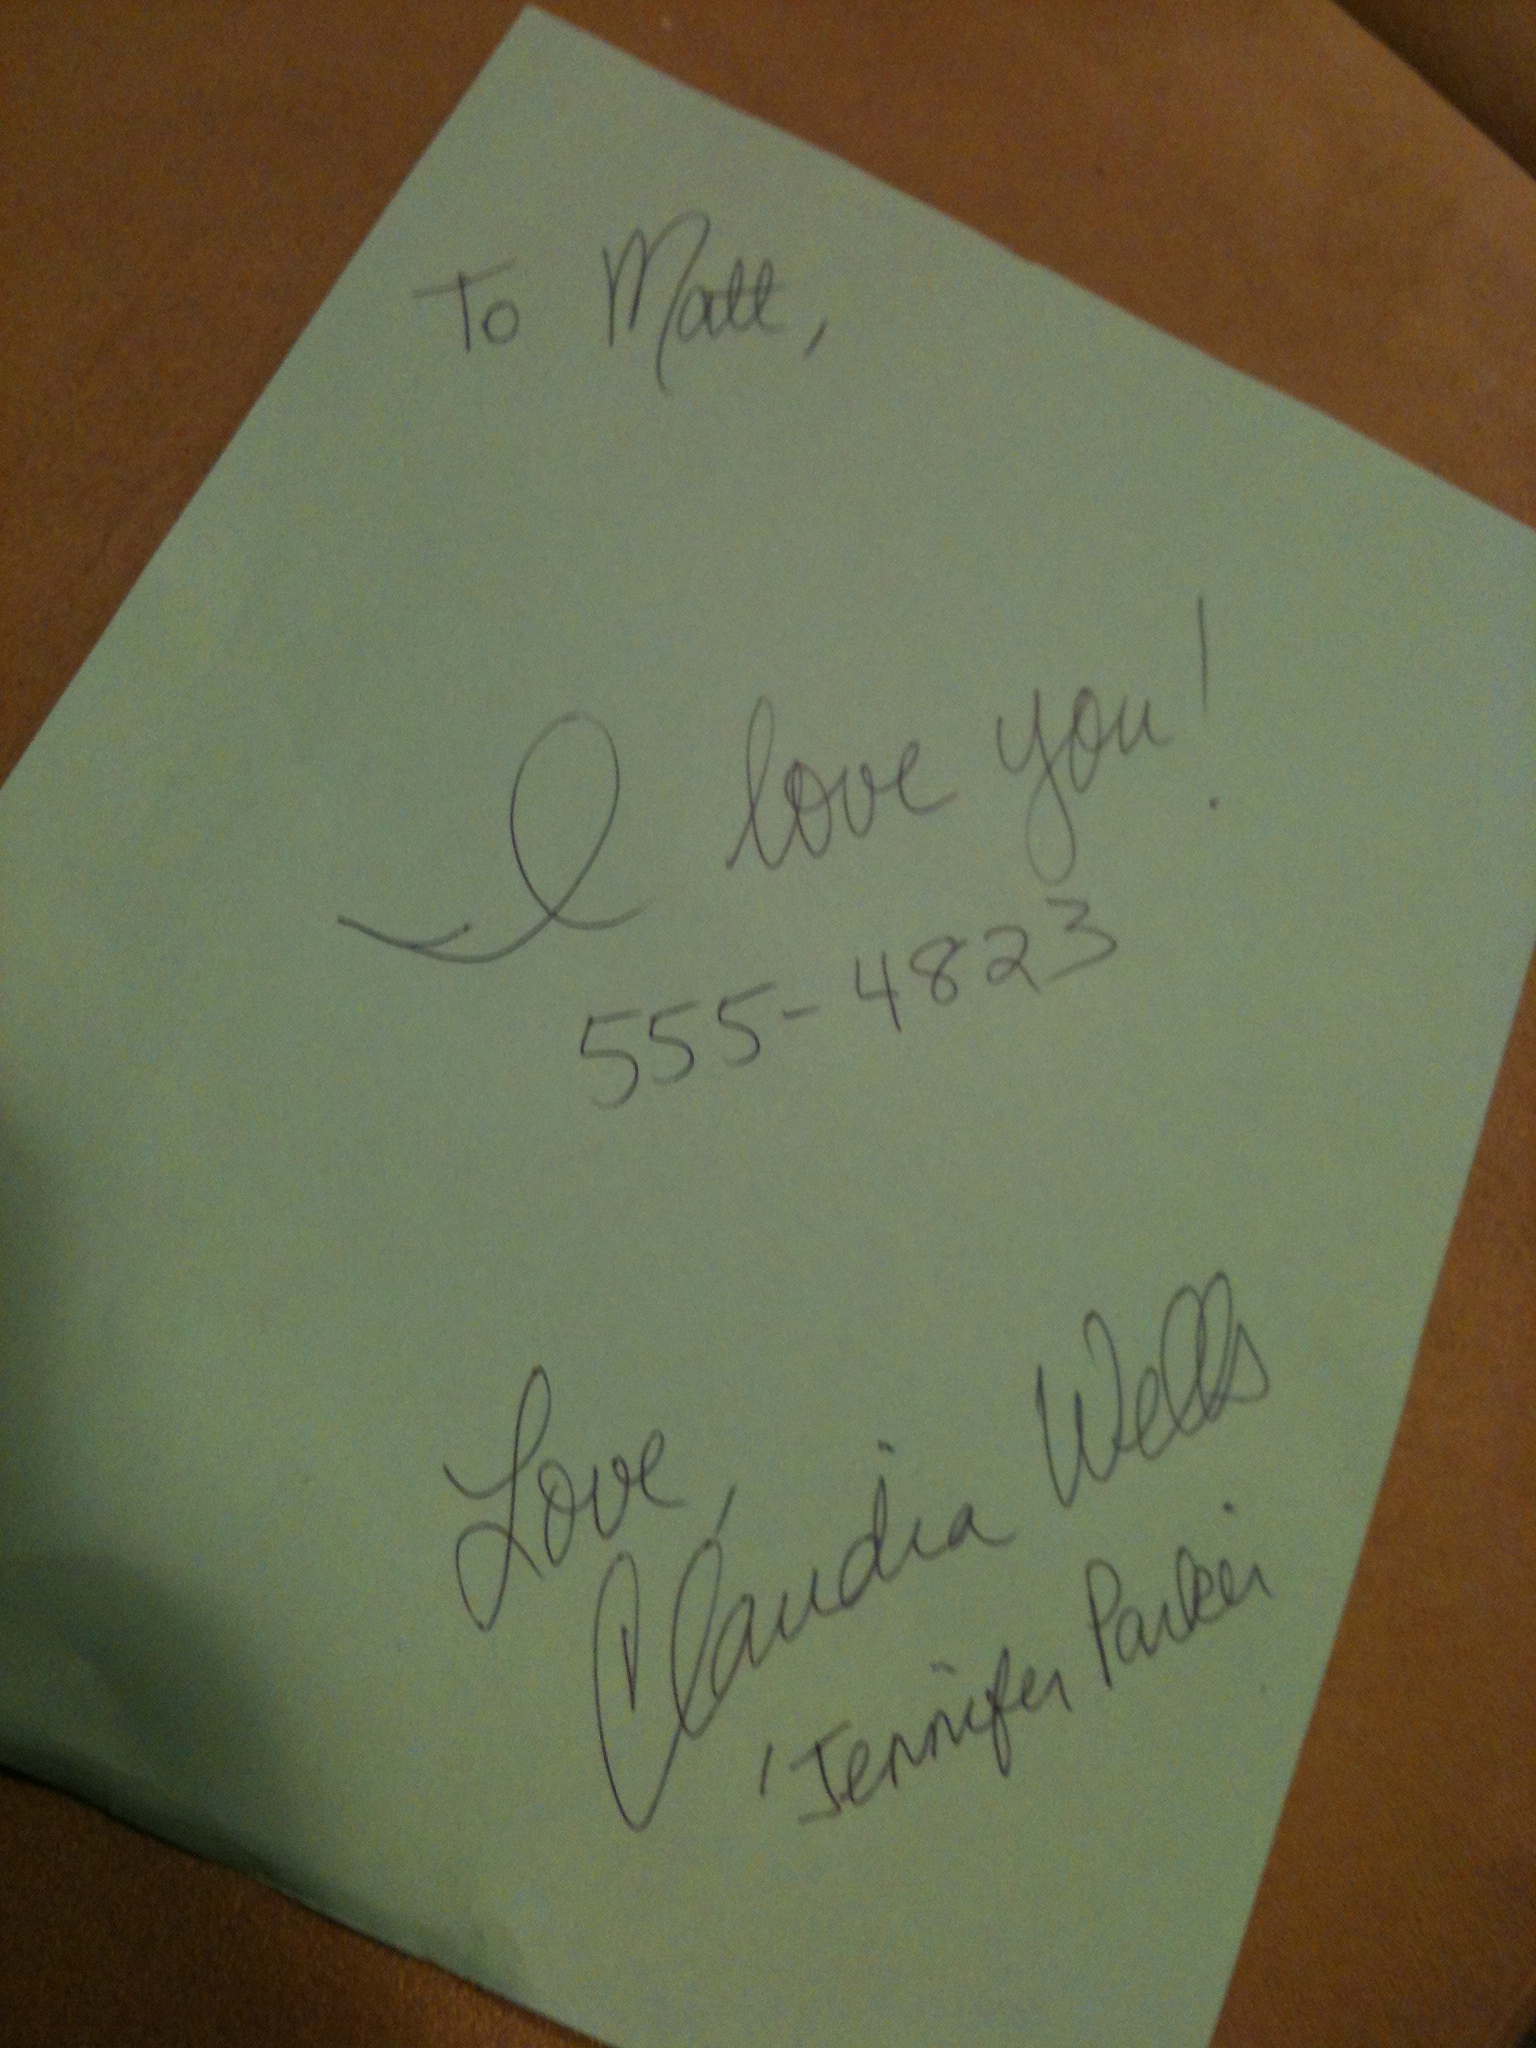 To Matt,
I love you!
555-4823
Love,
Claudia Wells
'Jennifer Parker